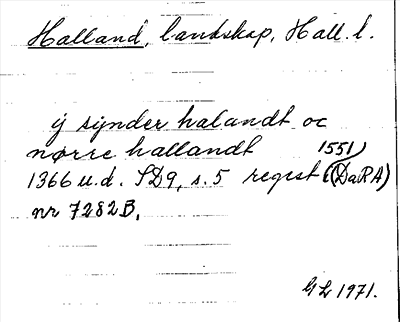 Halland, landskap, Hall. l.
ÿ sÿnder halandt oc
nørre hallandt 1551)
1366 u.d. SD9, s. 5 regest (DaRA)
nr 7282B.
GL 1971.